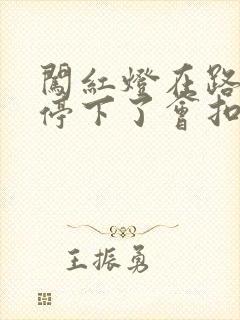 闖紅燈在路
停下了會扣
王振勇